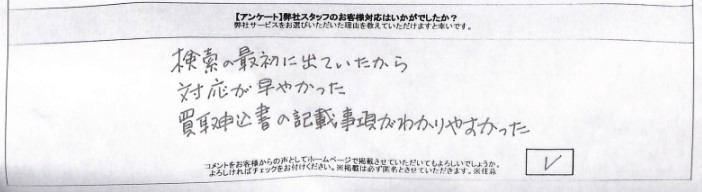 【アンケート】弊社スタッフのお客様対応はいかがでしたか？
弊社サービスをお選びいただいた理由を教えていただけますと幸いです。
検索の最初に出ていたから
対応が早やかった
買取申込書の記載事項がわかりやすかった
コメントをお客様からの声としてホームページで掲載させていただいてもよろしいでしょうか。
よろしければチェックをお付けください。※掲載は必ず匿名とさせていただきます。※任意